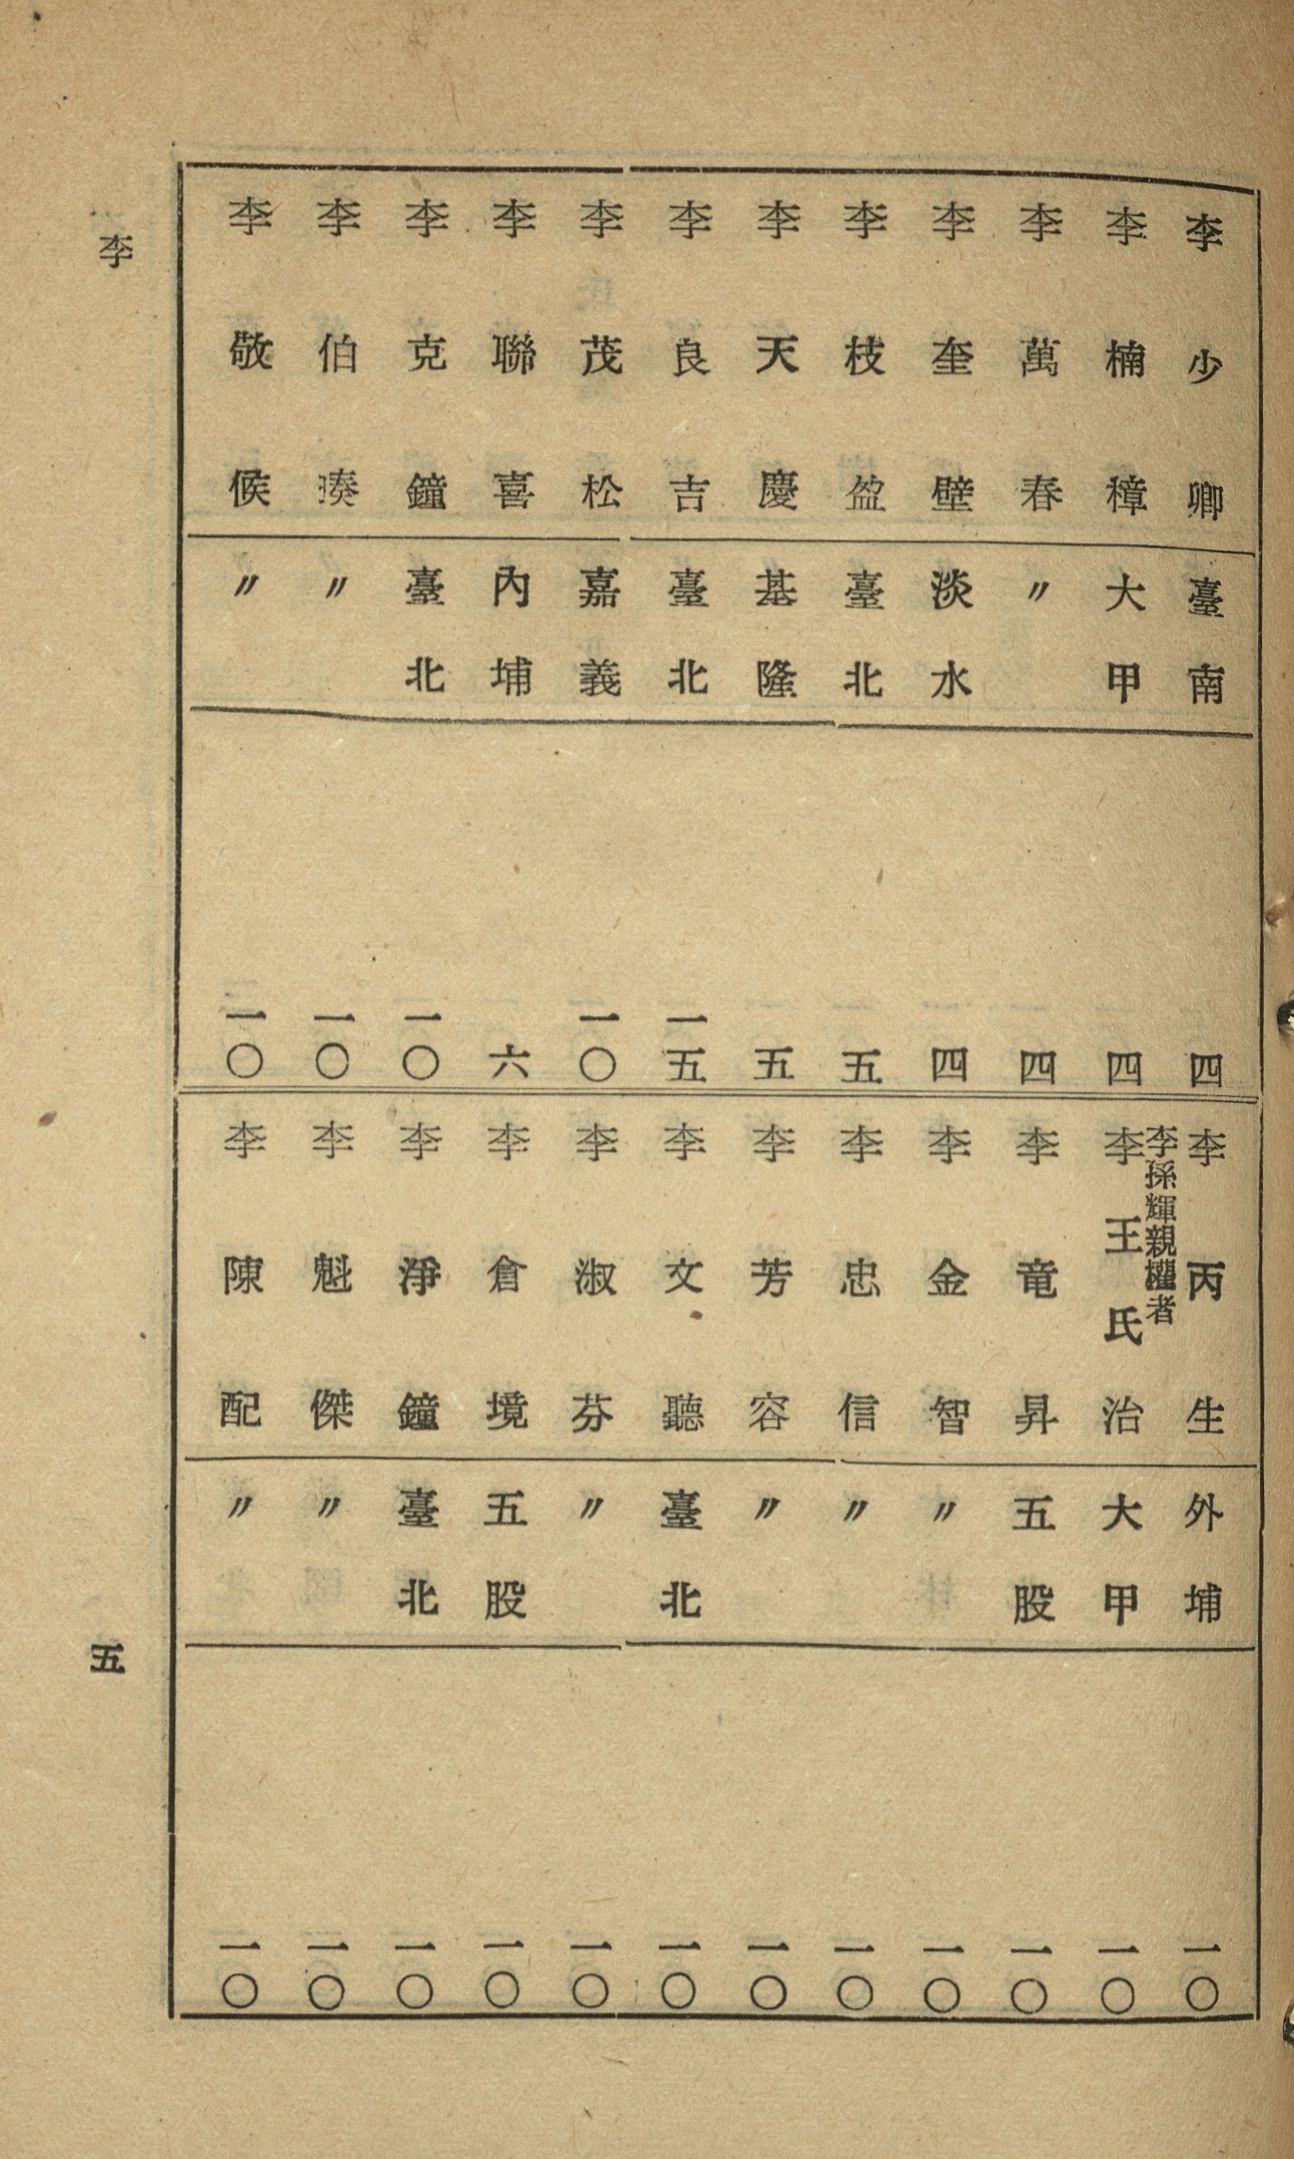 李少卿 臺南 四
李楠樟 大甲 四
李萬春 〃 四
李奎壁 淡水 四
李枝盈 臺北 五
李天慶 基隆 五
李良吉 臺北 一五
李茂松 嘉義 一〇
李聯喜 內埔 六
李克鐘 臺北 一〇
李伯 〃 一〇
李敬候 〃 一〇
李丙生 外埔 一〇
李孫輝親權者
李王氏治 大甲 一〇
李竜昇 五股 一〇
李金智 〃 一〇
李忠信 〃 一〇
李芳容 〃 一〇
李文聽 臺北 一〇
李淑芬 〃 一〇
李倉境 五股 一〇
李淨鐘 臺北 一〇
李魁傑 〃 一〇
李陳配 〃 一〇
李
五